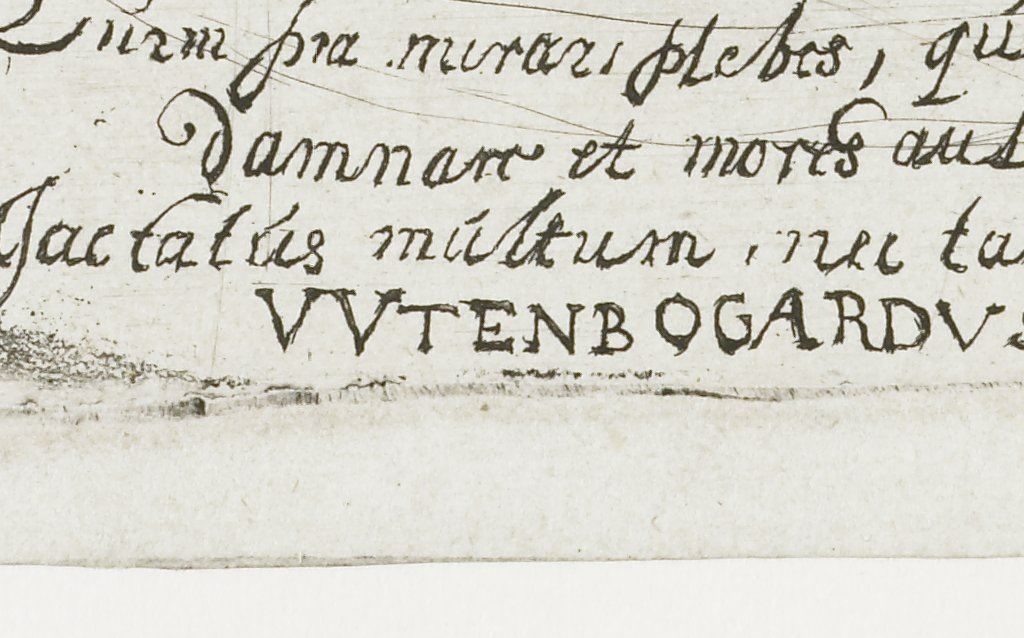 Quem pia mirari plebes, qu
Damnare et mores aul
Jactatus multum, nec ta
VVTENBOGARDVS